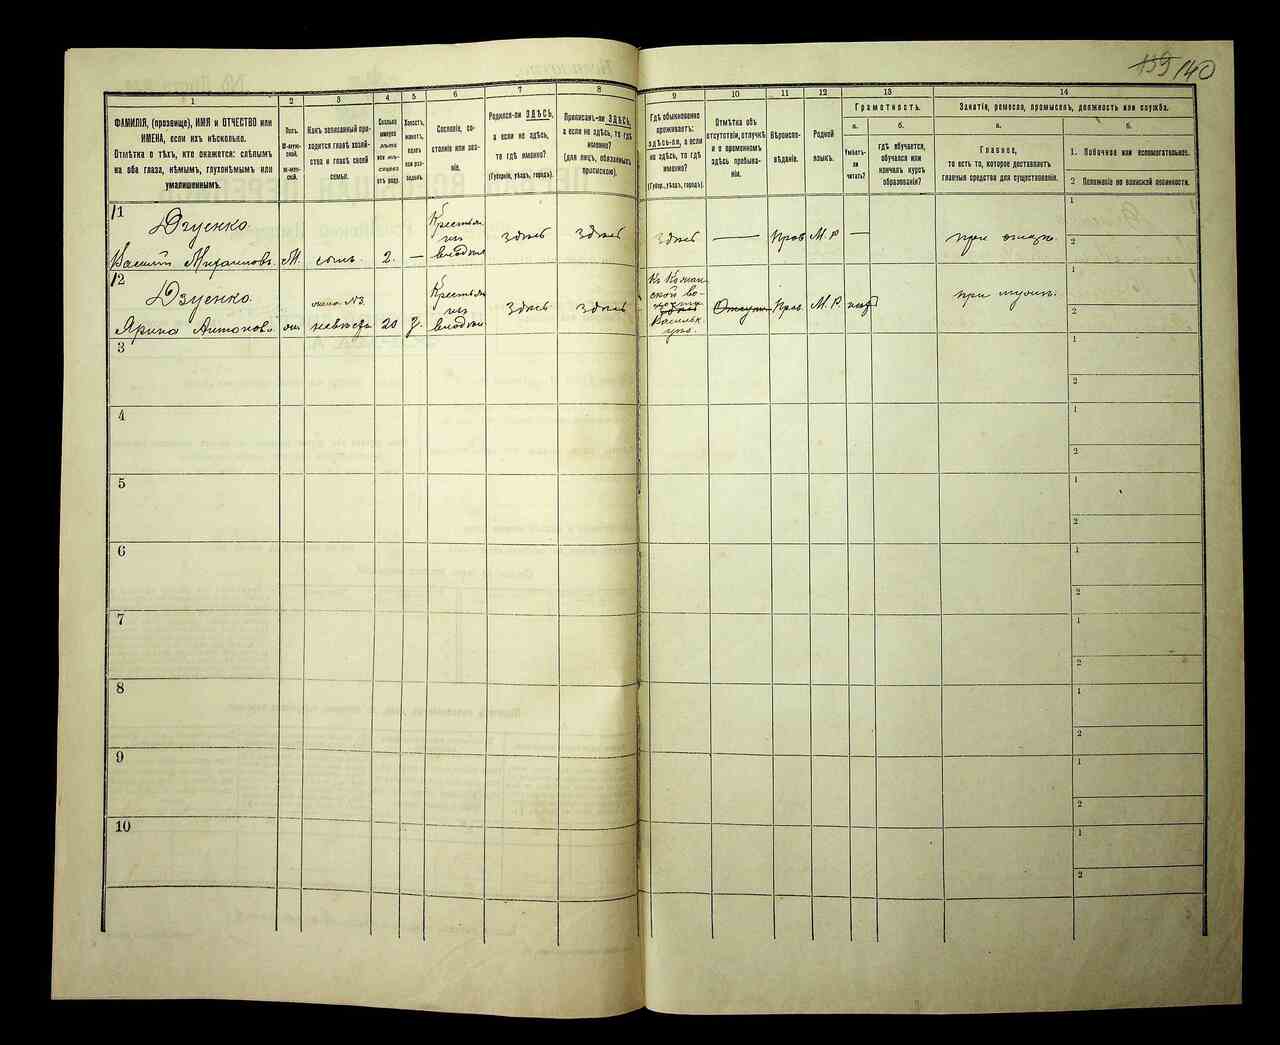 139 140
1
2
3
4
5
6
7
8
9
10
11
12
13
14
ФАМИЛІЯ, (прозвище), ИМЯ и ОТЧЕСТВО или
ИМЕНА, если ихъ нѣсколько.
Отмѣтка о тѣхъ, кто окажется: слѣпымъ
на оба глаза, нѣмымъ, глухонѣмымъ или
умалишеннымъ.
Полъ.
М-муж-
ской.
Ж-жен-
скій.
Какъ записанный при-
ходится главѣ хозяй-
ства и главѣ своей
семьи.
Сколько
минуло
лѣтъ
или мѣ-
сяцевъ
отъ роду.
Холостъ,
женатъ,
вдовъ
или раз-
веденъ.
Сословіе, со-
стояніе или зва-
ніе.
Родился-ли ЗДѢСЬ,
а если не здѣсь,
то гдѣ именно?
(Губернія, уѣздъ, городъ).
Приписанъ-ли ЗДѢСЬ,
а если не здѣсь, то гдѣ
именно?
(для лицъ, обязанныхъ
припискою).
Гдѣ обыкновенно
проживаетъ:
здѣсь-ли, а если
не здѣсь, то гдѣ
именно?
(Губерн., уѣздъ, городъ).
Отмѣтка объ
отсутствіи, отлучкѣ
и о временномъ
здѣсь пребыва-
ніи.
Вѣроиспо-
вѣданіе.
Родной
языкъ.
Грамотность.
а.
Умѣетъ-
ли
читать?
б.
гдѣ обучается,
обучался или
кончилъ курсъ
образованія?
Занятіе, ремесло, промыселъ, должность или служба.
а.
Главное,
то есть то, которое доставляетъ
главныя средства для существованія.
б.
1. Побочное или вспомогательное.
2 Положеніе по воинской повинности.
11
Дзусенко
Василій Михаиловъ М. сынъ 2. — Крестьян. изъ владѣл. здѣсь здѣсь здѣсь — Прав М. Р —
1
2
12
Дзусенко.
Ярина Антонова жен. жена №3 невѣстк 20 з. Крестьян изъ владѣл здѣсь здѣсь Отсут. Прав. М. Р нѣтъ
1
2
3
1
2
4
1
2
5
1
2
6
1
2
7
1
2
8
1
2
9
1
2
10
1
2